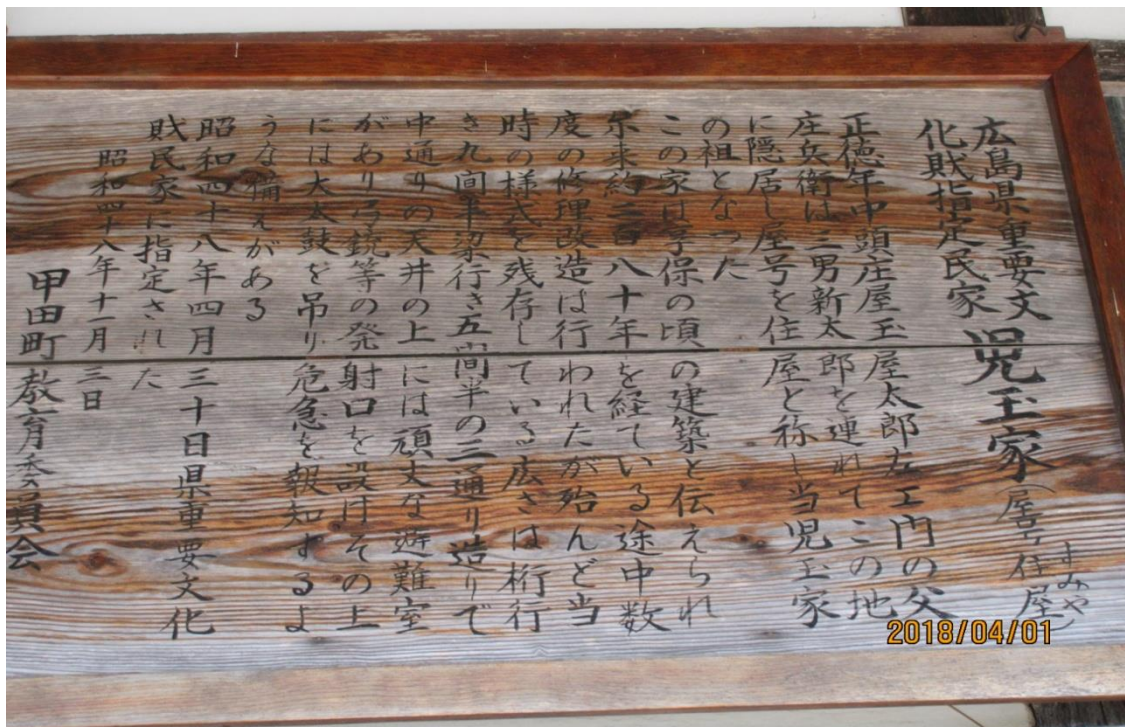 広島県重要文
化財指定民家 児玉家(屋号住屋)
すみや
正徳年中頭庄屋玉屋太郎左エ門の父
庄兵衛は三男新太郎を連れてこの地
に隠居し屋号を住屋と称し当児玉家
の祖となった
この家は享保の頃の建築と伝えられ
尓来約二百八十年を経ている途中数
度の修理改造は行われたが殆んど当
時の様式を残存している広さは桁行
き九間半梁行き五間半の三通り造りで
中通りの天井の上には頑丈な避難室
があり弓銃等の発射口を設けその上
には大太鼓を吊り危急を報知するよ
うな構えがある
昭和四十八年四月三十日県重要文化
財民家に指定された
昭和四十八年十一月三日
甲田町教育委員会
2018/04/01